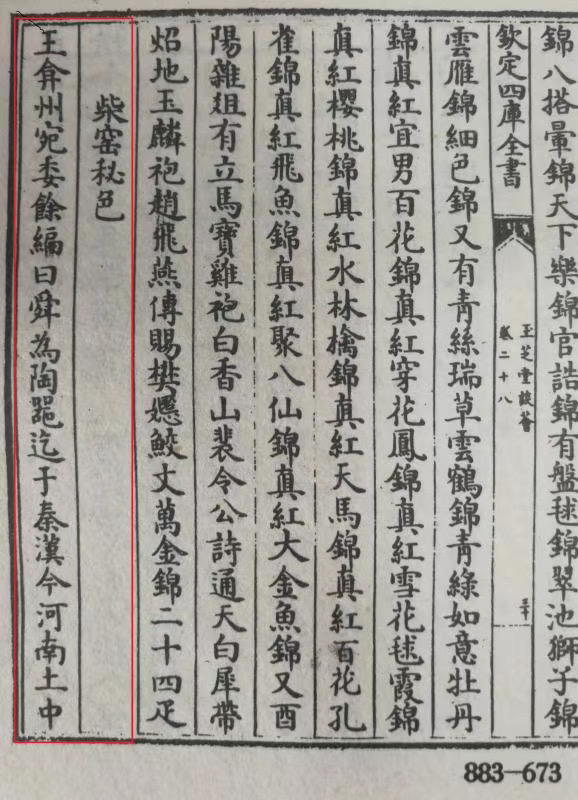 錦八搭暈錦天下樂錦官誥錦有盤毬錦翠池獅子錦
欽定四庫全書
玉芝堂談薈
卷二十八
三十
雲雁錦細色錦又有青絲瑞草雲鶴錦青綠如意牡丹
錦真紅宜男百花錦真紅穿花鳳錦真紅雪花毬霞錦
真紅櫻桃錦真紅水林檎錦真紅天馬錦真紅百花孔
雀錦真紅飛魚錦真紅聚八仙錦真紅大金魚錦又酉
陽雜俎有立馬寶雞袍白香山裴令公詩通天白犀帶
炤地玉麟袍趙飛燕傳賜樊嫕鮫文萬金錦二十四疋
柴窑秘色
王弇州宛委餘編曰舜為陶器迄于秦漢今河南土中
883—673